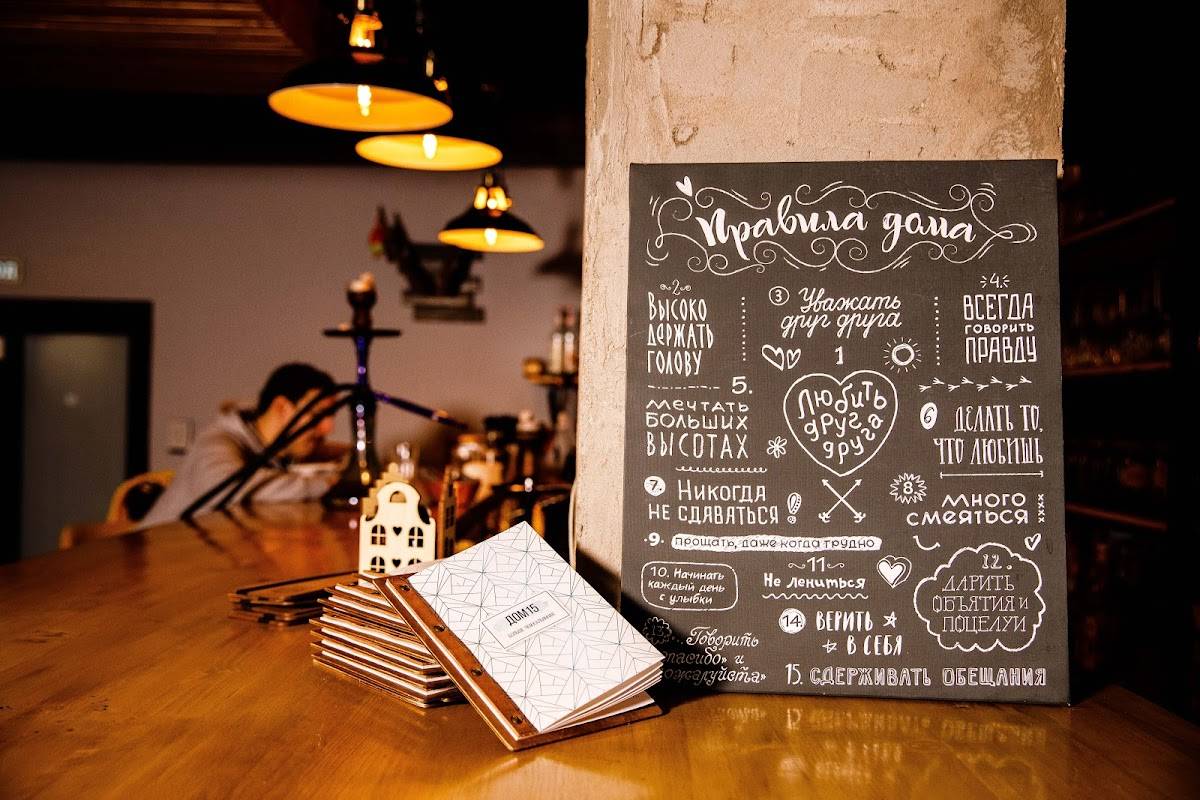 Правила дома
~2~
Высоко
держать
голову
3 Уважать
друг друга
4.
Всегда
говорить
правду
1
Любить
друг
друга
5.
Мечтать
больших
высотах
6 Делать то,
что любишь
7. Никогда
не сдаваться!
8
много
смеяться
xxxx
9. прощать, даже когда трудно
10. Начинать
каждый день
с улыбки
~11~
Не лениться
12.
Дарить
объятия и
поцелуи
Говорить
спасибо» и
пожалуйста»
14 Верить
в себя
15. Сдерживать обещания
ДОМ15